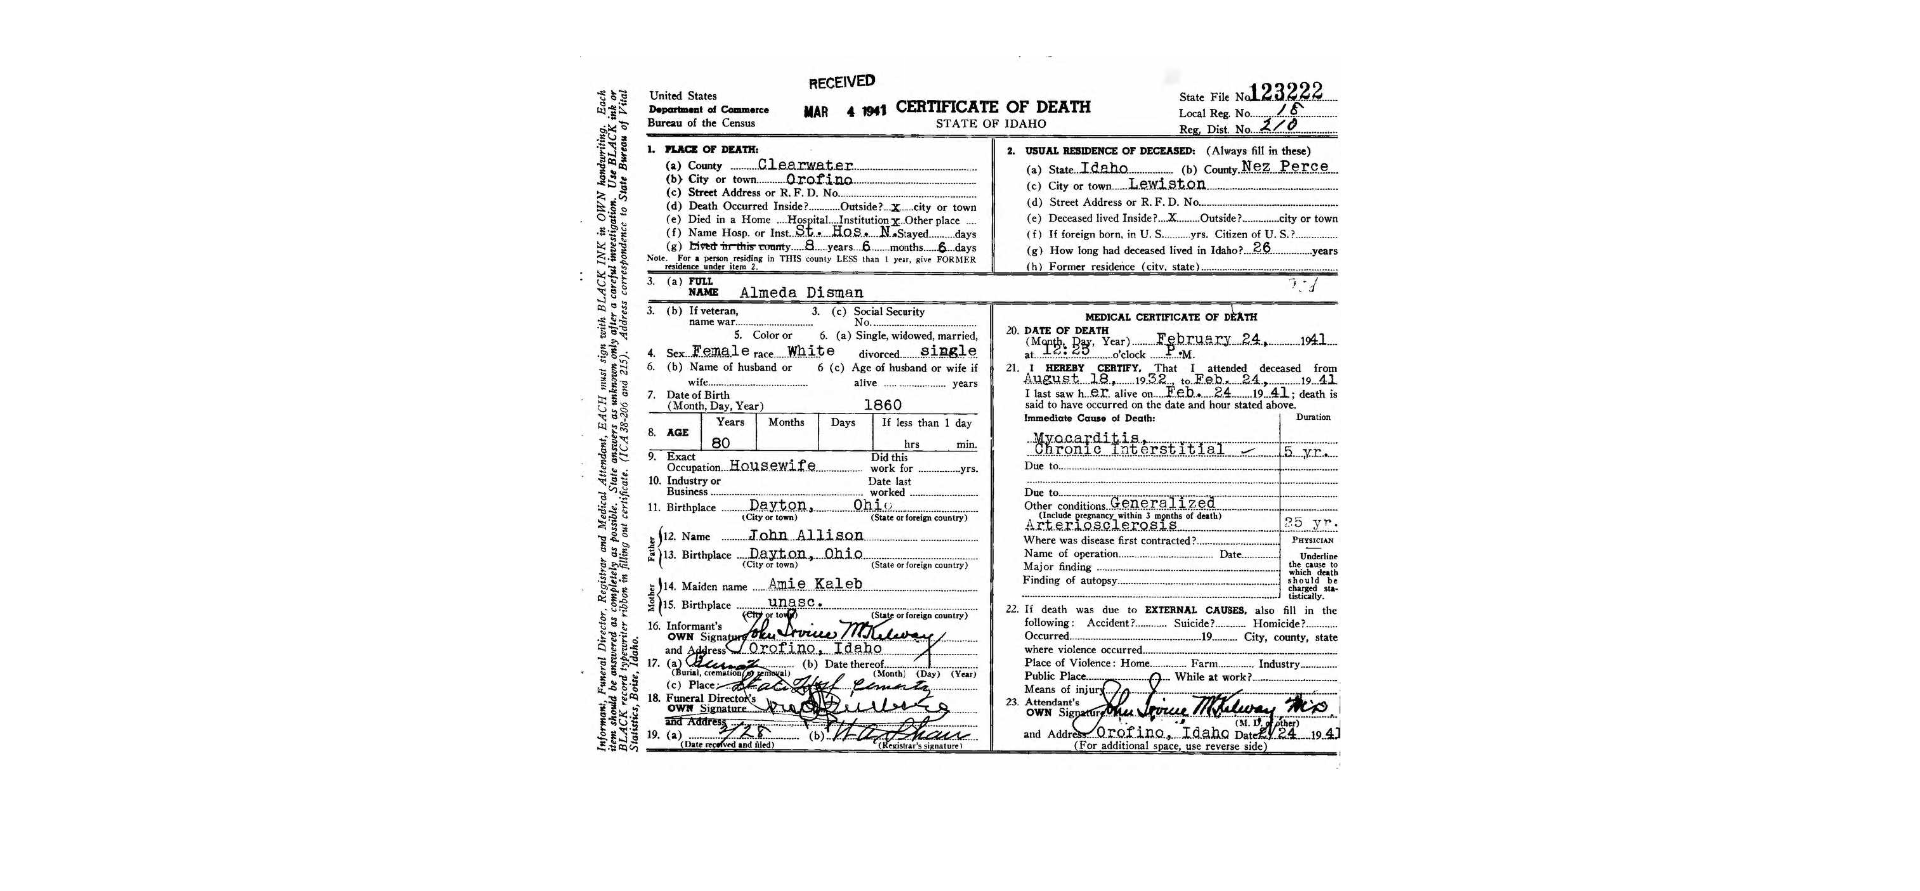 RECEIVED
MAR 4 1941
United States
Department of Commerce
Bureau of the Census
CERTIFICATE OF DEATH
STATE OF IDAHO
State File No. 123222
Local Reg. No. 18
Reg. Dist. No. 210
Informant, Funeral Director, Registrar and Medical Attendant, EACH must sign with BLACK INK in OWN handwriting. Each
item should be answered as completely as possible. State answers as unknown only after a careful investigation. Use BLACK ink or
BLACK record typewriter ribbon in filling out certificate. (ICA 38-206 and 215). Address correspondence to State Bureau of Vital
Statistics, Boise, Idaho.
1. PLACE OF DEATH:
(a) County Clearwater
(b) City or town Orofino
(c) Street Address or R. F. D. No.
(d) Death Occurred Inside? Outside? x city or town
(e) Died in a Home Hospital Institution x Other place
(f) Name Hosp. or Inst. St. Hos. N. Stayed days
(g) Lived in this county 8 years 6 months 6 days
Note. For a person residing in THIS county LESS than 1 year, give FORMER
residence under item 2.
2. USUAL RESIDENCE OF DECEASED: (Always fill in these)
(a) State Idaho (b) County Nez Perce
(c) City or town Lewiston
(d) Street Address or R. F. D. No.
(e) Deceased lived Inside? X Outside? city or town
(f) If foreign born, in U. S. yrs. Citizen of U. S.?
(g) How long had deceased lived in Idaho? 26 years
(h) Former residence (city, state)
3. (a) FULL
NAME Almeda Disman
3. (b) If veteran, 3. (c) Social Security
name war No.
5. Color or 6. (a) Single, widowed, married,
4. Sex Female race White divorced single
6. (b) Name of husband or 6 (c) Age of husband or wife if
wife alive years
7. Date of Birth
(Month, Day, Year) 1860
8. AGE Years Months Days If less than 1 day
80 hrs min.
9. Exact Did this
Occupation Housewife work for yrs.
10. Industry or Date last
Business worked
11. Birthplace Dayton, Ohio
(City or town) (State or foreign country)
Father
12. Name John Allison
13. Birthplace Dayton, Ohio
(City or town) (State or foreign country)
Mother
14. Maiden name Amie Kaleb
15. Birthplace unasc.
(City or town) (State or foreign country)
16. Informant's
OWN Signature John Irvine McKelway
and Address Orofino, Idaho
17. (a) Burial (b) Date thereof
(Burial, cremation or removal) (Month) (Day) (Year)
(c) Place State Cemetery
18. Funeral Director's
OWN Signature
and Address
19. (a) 2/28 (b)
(Date received and filed) (Registrar's signature)
MEDICAL CERTIFICATE OF DEATH
20. DATE OF DEATH
(Month, Day, Year) February 24, 1941
at 12:25 o'clock P. M.
21. I HEREBY CERTIFY, That I attended deceased from
August 18, 1932, to Feb. 24, 1941
I last saw her alive on Feb. 24 1941; death is
said to have occurred on the date and hour stated above.
Immediate Cause of Death: Duration
Myocarditis,
Chronic Interstitial 5 yr.
Due to
Due to
Other conditions Generalized
(Include pregnancy within 3 months of death)
Arteriosclerosis 25 yr.
Where was disease first contracted?
Name of operation Date
Major finding
Finding of autopsy
PHYSICIAN
Underline
the cause to
which death
should be
charged sta-
tistically.
22. If death was due to EXTERNAL CAUSES, also fill in the
following: Accident? Suicide? Homicide?
Occurred 19 City, county, state
where violence occurred
Place of Violence: Home Farm Industry
Public Place While at work?
Means of injury
23. Attendant's
OWN Signature John Irvine McKelway M.D.
(M. D. or other)
and Address Orofino, Idaho Date 2/24 1941
(For additional space, use reverse side)